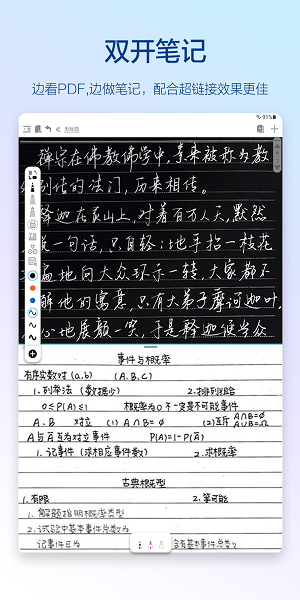 双开笔记
边看PDF,边做笔记，配合超链接效果更佳
91%
未标题
禅宗在佛教佛学中,素来被称为教
别传的法门,历来相传。
释迦在灵山上,对着百万人天,默然
一句话,只自轻轻地手拈一枝花
遍地向大众环示一转,大家都不
解他的寓意,只有大弟子摩诃迦叶,
心地展颜一笑,于是释迦便当众
事件与概率
有序实数对(a,b) (A,B,C)
1.列举法(数据少) 2.排列组合
0≤P(A)≤1 概率为0不一定是不可能事件
A、B 对立 (1) A∩B=∅ (2)互斥 A∩B=∅
A∪B=Ω
A与Ā互为对立事件 P(A)=1-P(Ā)
1.记事件(求相应事件数) 2.求概率
古典概型
1.有限 2.等可能
1.解题指明概率类型
2.试验中基本事件总数为
记事件E为 含有基本事件总数